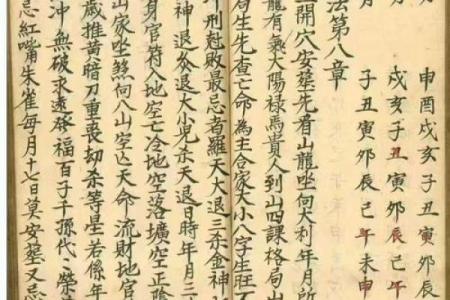 申酉戌亥子丑寅卯辰
月戌亥子丑寅卯辰巳午
月子丑寅卯辰巳午未申
法第八章
開穴安塟先看山龍坐向大利年月所
龍有氣太陽祿馬貴人到山四課格局
局生先查亡命為主合家大小八字生旺
刑尅敗最忌者羅天大退三杀金神
神退大小兒杀天退日時年月三
身官符入地空亡冷地空落壙空正陰
山家坐煞向八山空亡天命流財地官
歲推黃暗刀重喪刧杀等星若係年
冲無破求逐發福百子千孫代二榮
忌紅嘴朱雀每月十七日莫安塟又忌